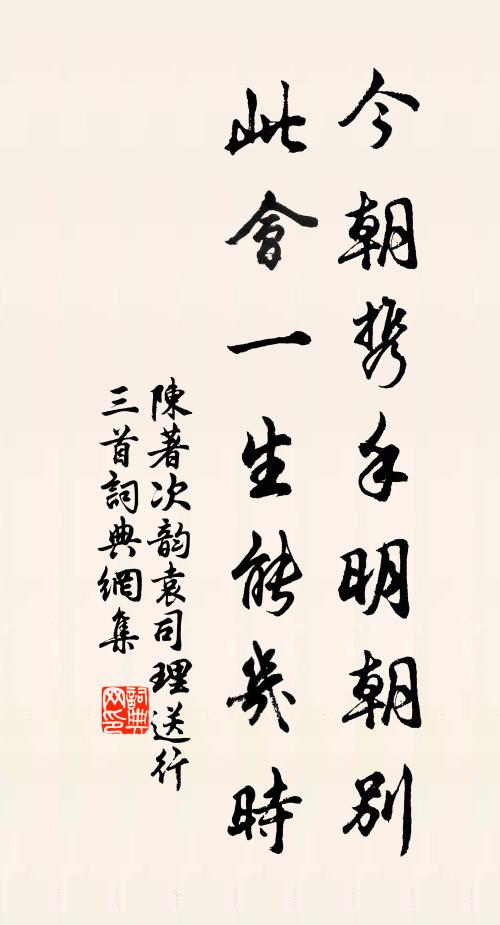 今朝携手明朝別
此會一生能幾時
陳著次韵袁司理送行
三首詞典網集
詞典網印